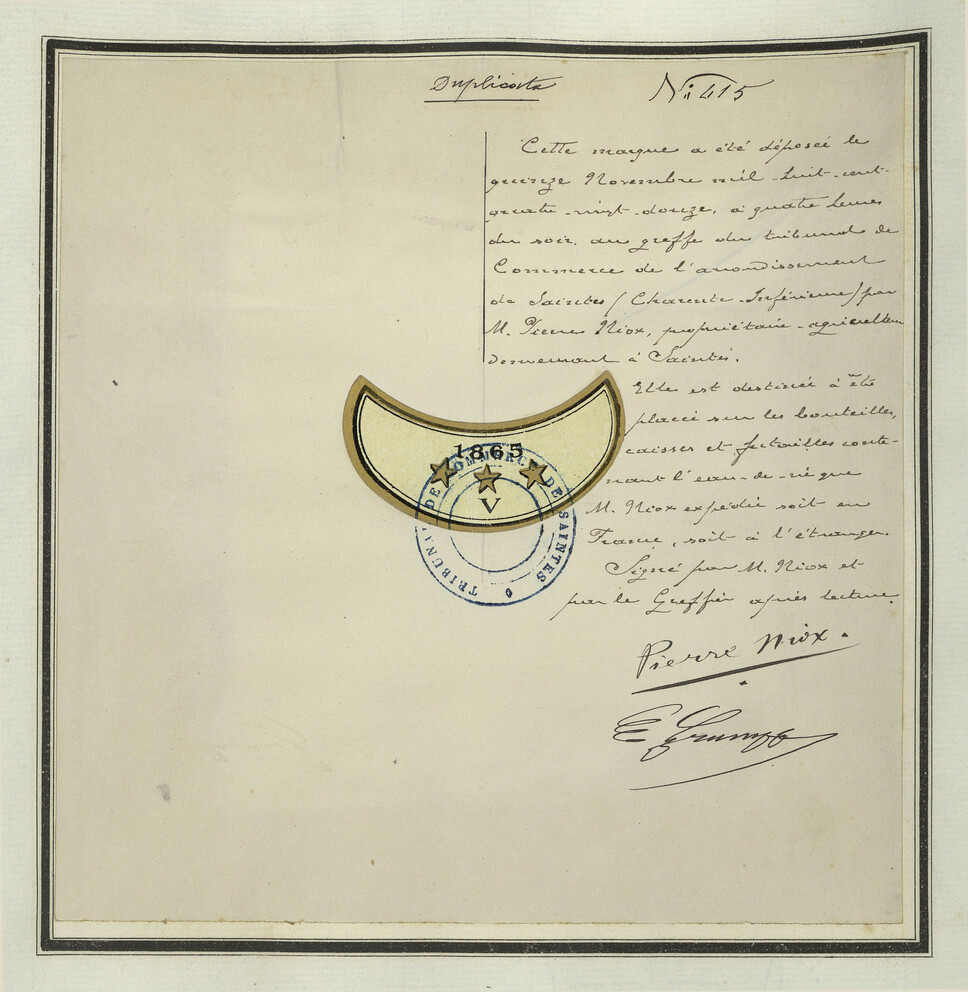 Duplicata
N: 415
Cette marque a été déposée le
quinze Novembre mil-huit-cent-
quatre-vingt-douze, à quatre heures
du soir, au greffe du tribunal de
Commerce de l'arrondissement
de Saintes (Charente-Inférieure) par
M. Pierre Niox, propriétaire-agriculteur
demeurant à Saintes.
Elle est destinée à être
placée sur les bouteilles,
caisses et futailles conte-
nant l'eau-de-vie que
M. Niox expédie soit en
France, soit à l'étranger.
Signé par M. Niox et
par le Greffier après lecture.
1865
V
TRIBUNAL DE COMMERCE DE SAINTES
Pierre Niox.
E.